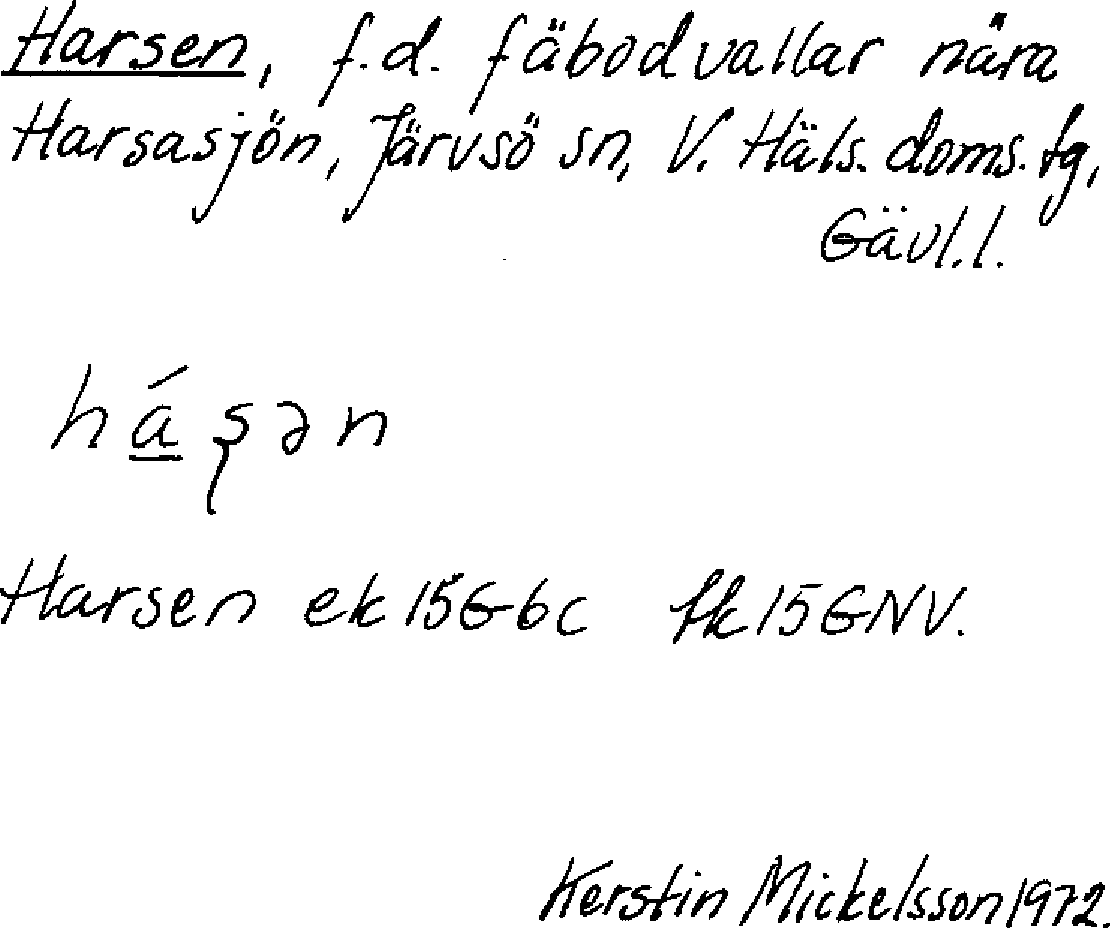 Harsen, f.d. fäbodvallar nära
Harsasjön, Järvsö sn, V. Häls. doms. tg,
Gävl.l.
há̲ʂən
Harsen ek 15G6c fk 15GNV.
Kerstin Mickelsson 1972.